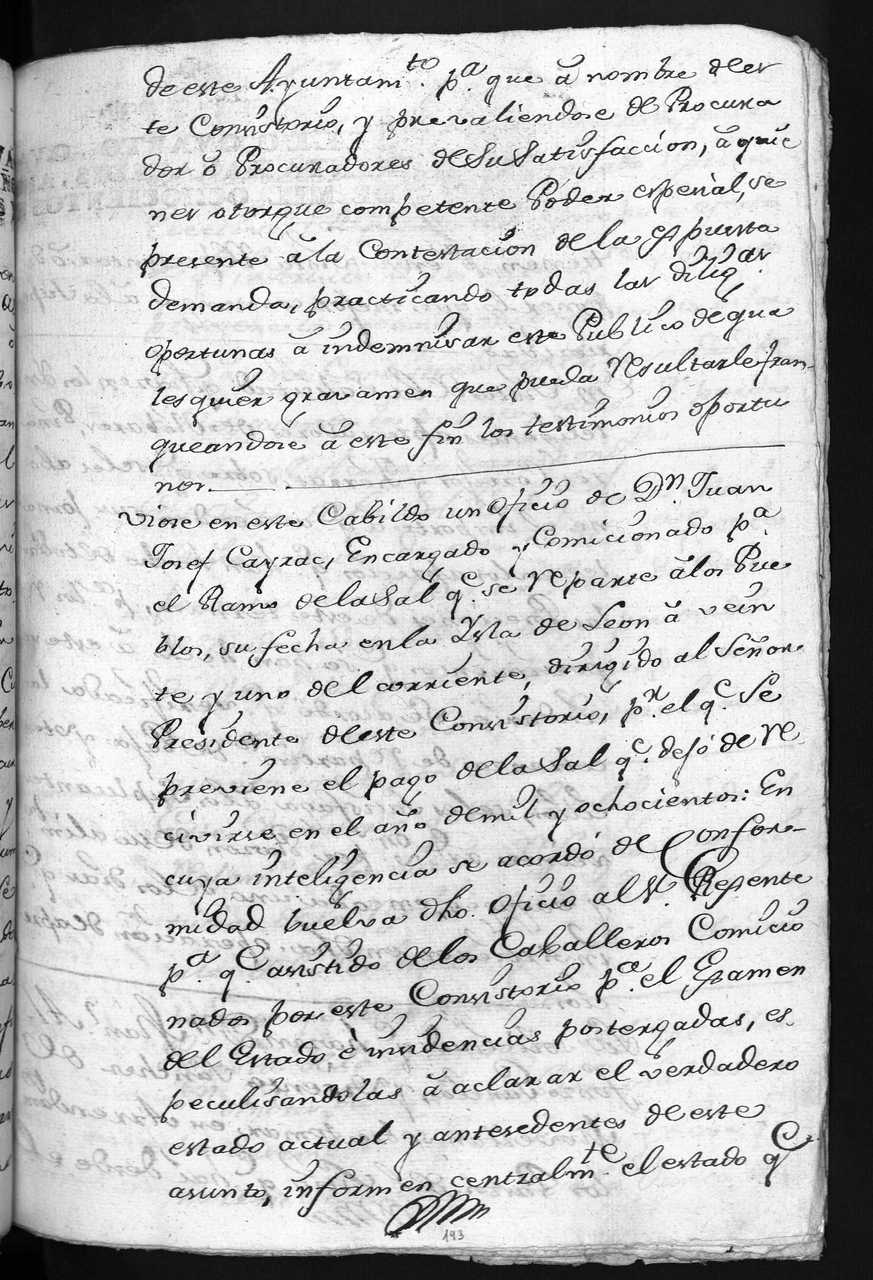 de este Ayuntam.to p.a que à nombre de es
te Consistorio, y prevaliendose de Procura
dor ò Procuradores de Su Satisfaccion, à quie
nes otorgue competente Poder espesial, se
presente à la Contestación de la expuesta
demanda, practicando todas las dilig.as
oportunas à indemnisar este Publico de qua
lesquier gravamen que pueda resultarle fran-
queandose à este fin los testimonios oportu
nos.
Viose en este Cabildo un Oficio de D.n Juan
Josef Cayrac, Encargado y Comicionado p.a
el Ramo de la Sal q.e se reparte à los Pue
blos, su fecha en la Ysla de Leon à vein
te y uno del corriente, dirigido al Señor
Presidente de este Consistorio, p.r el q.e Se
previene el pago de la Sal q.e dejó de re
civirse en el año de mil y ochocientos: En
cuya inteligencia se acordó de Confor-
midad buelva dho. Oficio al S.r Regente
p.a q.e asistido de los Caballeros Comicio
nados por este Consistorio p.a el Examen
del Estado è insidencias postergadas, es-
peculisandolas à aclarar el verdadero
estado actual y antesedentes de este
asunto, informen centralm.te el estado q.e
193